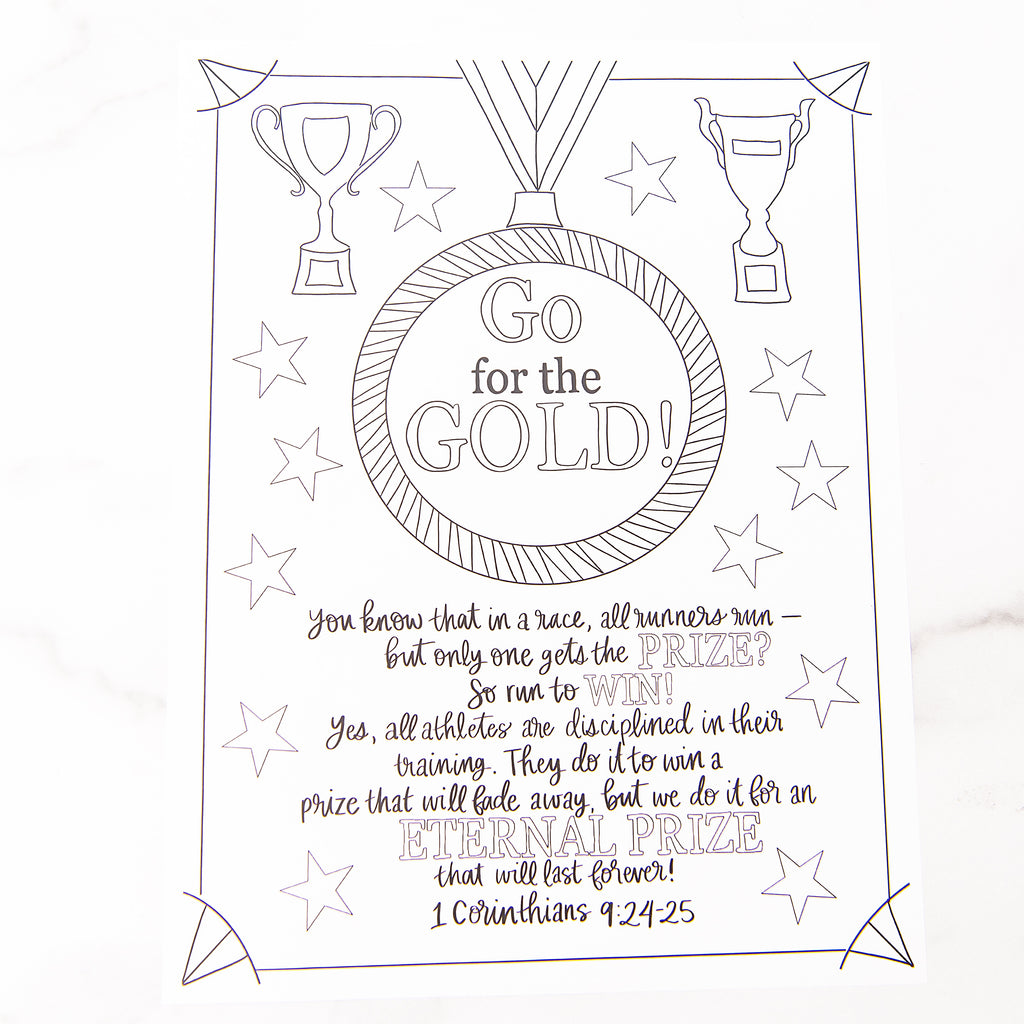 Go
for the
GOLD!
You know that in a race, all runners run —
but only one gets the PRIZE?
So run to WIN!
Yes, all athletes are disciplined in their
training. They do it to win a
prize that will fade away, but we do it for an
ETERNAL PRIZE
that will last forever!
1 Corinthians 9:24-25